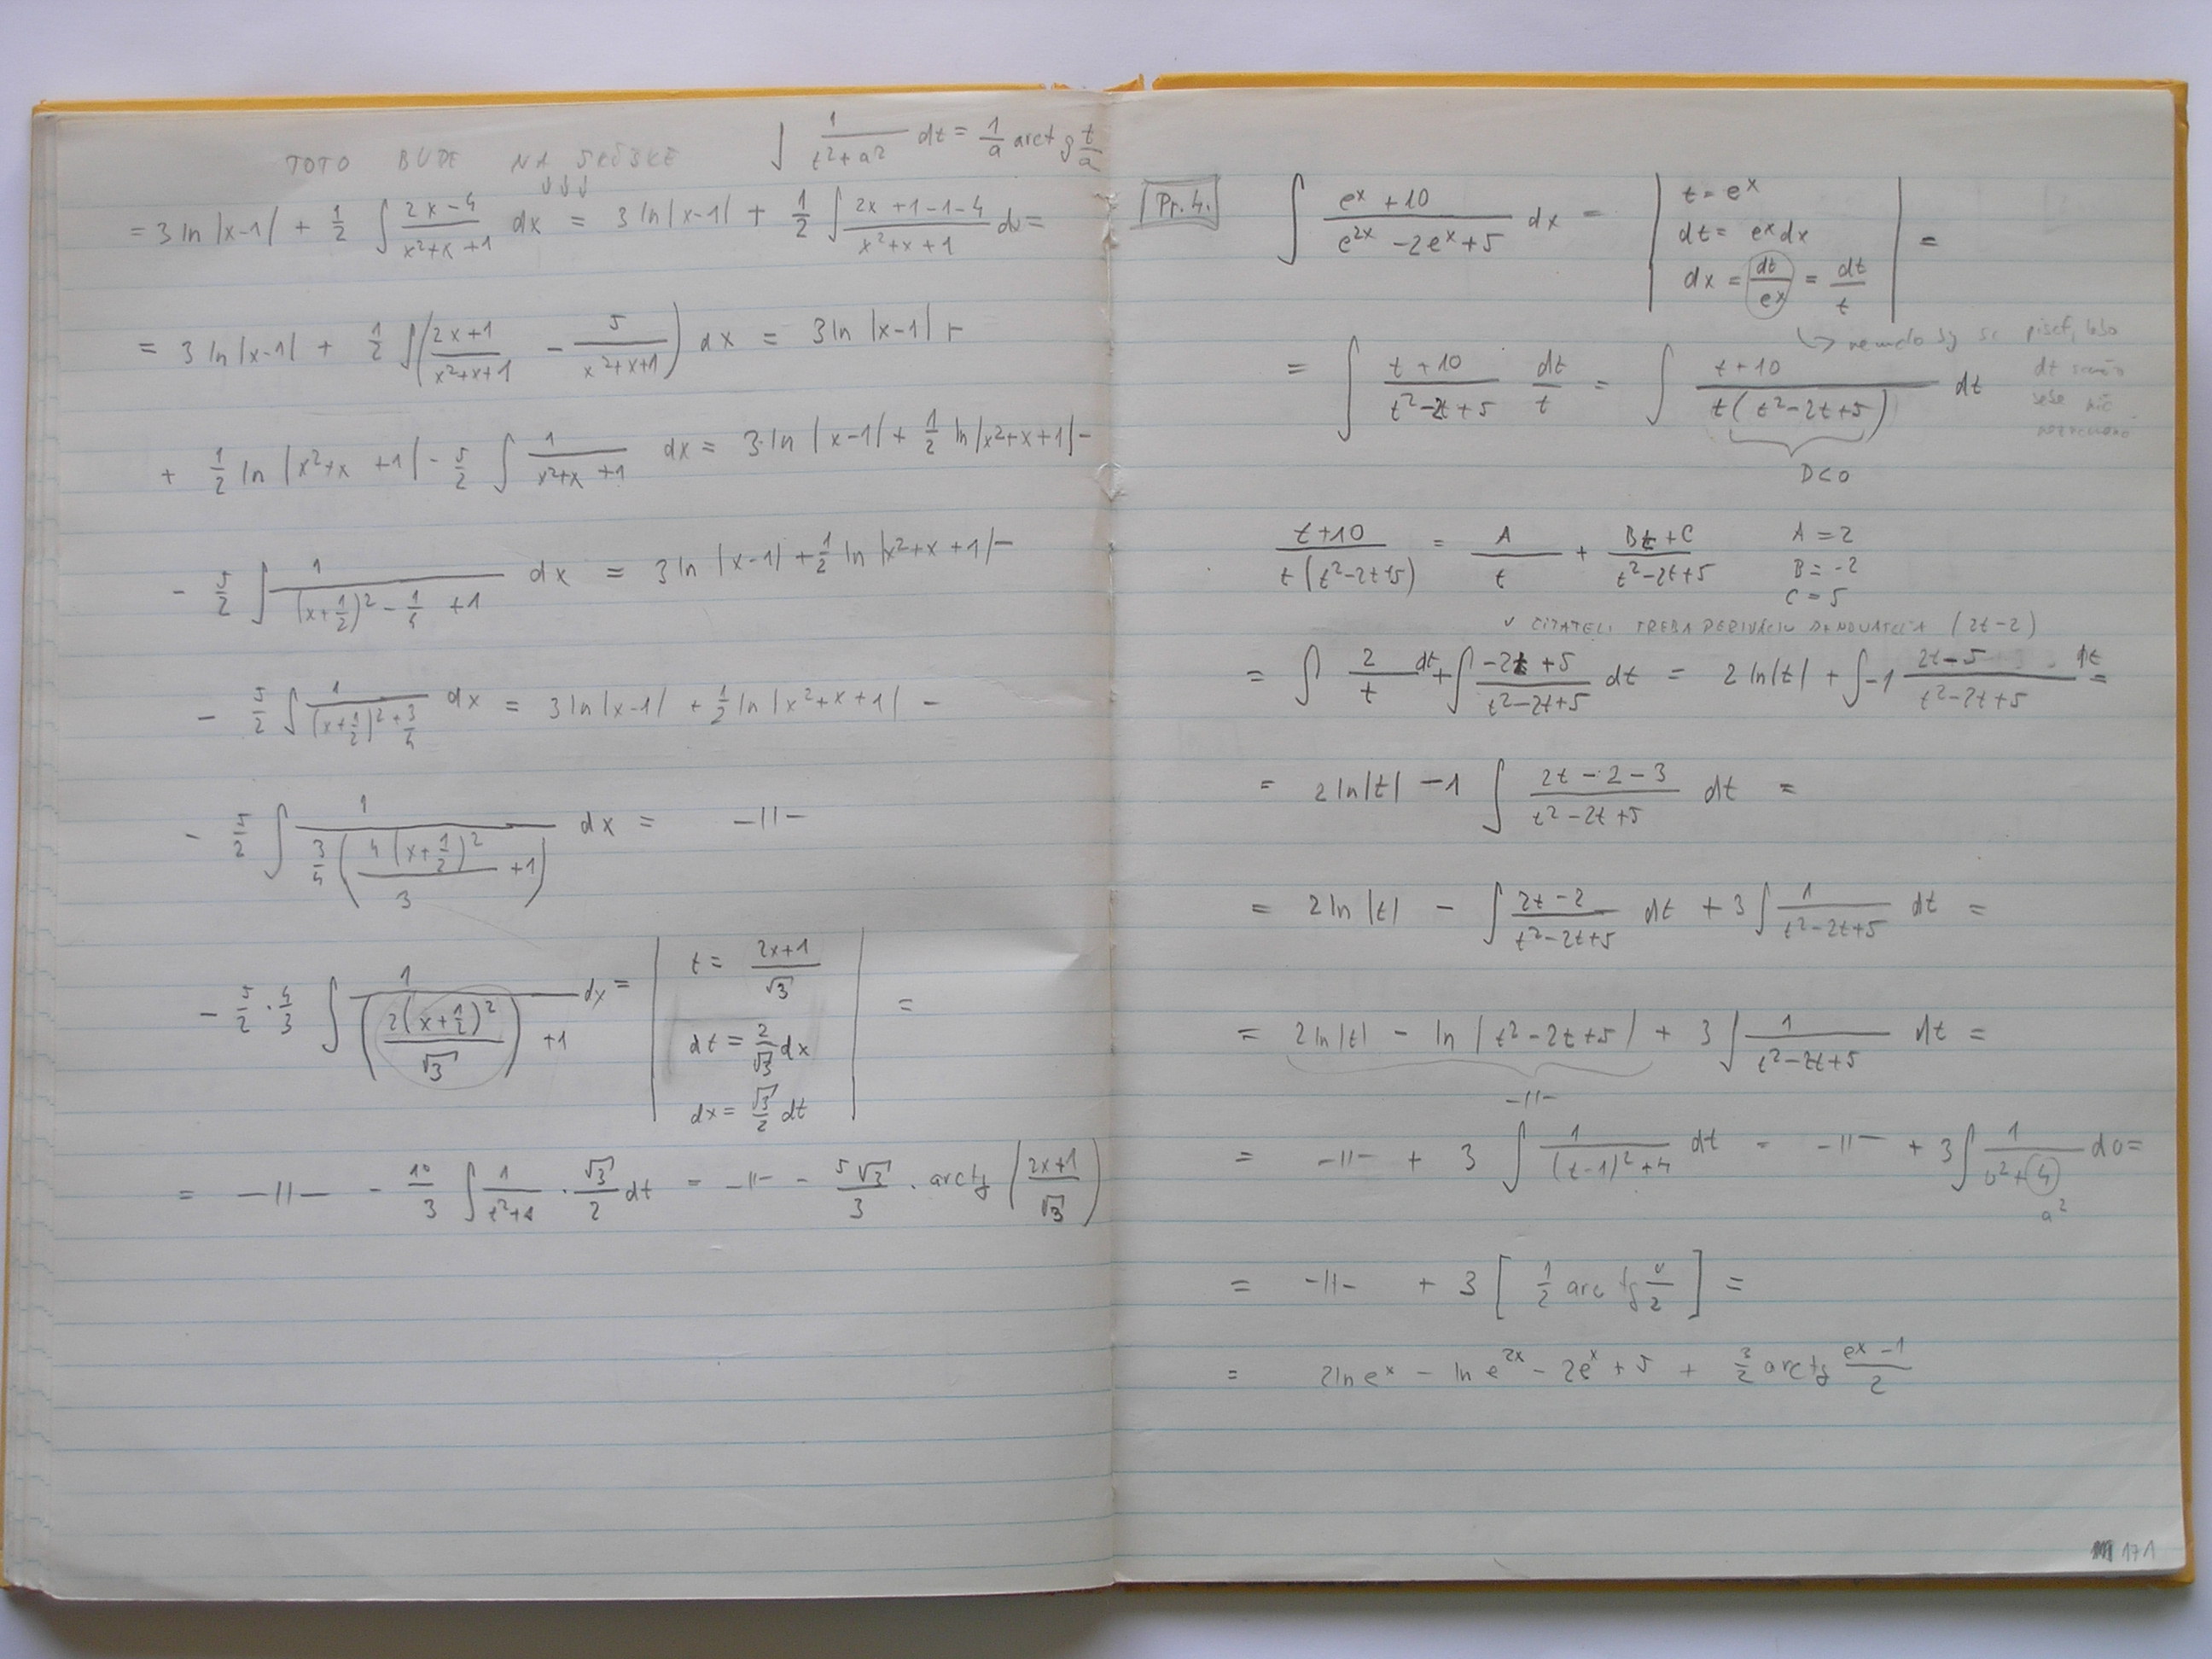 ∫ 1/(t²+a²) dt = 1/a arctg t/a
TOTO BUDE NA SKÚŠKE
↓↓↓
= 3 ln |x-1| + 1/2 ∫ (2x-4)/(x²+x+1) dx = 3 ln |x-1| + 1/2 ∫ (2x+1-1-4)/(x²+x+1) dx =
= 3 ln |x-1| + 1/2 ∫ ((2x+1)/(x²+x+1) - 5/(x²+x+1)) dx = 3 ln |x-1| +
+ 1/2 ln |x²+x+1| - 5/2 ∫ 1/(x²+x+1) dx = 3·ln |x-1| + 1/2 ln |x²+x+1| -
- 5/2 ∫ 1/((x+1/2)² - 1/4 + 1) dx = 3 ln |x-1| + 1/2 ln |x²+x+1| -
- 5/2 ∫ 1/((x+1/2)² + 3/4) dx = 3 ln |x-1| + 1/2 ln |x²+x+1| -
- 5/2 ∫ 1/(3/4 (4(x+1/2)²/3 + 1)) dx = -11-
- 5/2 · 4/3 ∫ 1/((2(x+1/2)²/√3) + 1) dx = | t = (2x+1)/√3
dt = 2/√3 dx
dx = √3/2 dt | =
= -11- - 10/3 ∫ 1/(t²+1) · √3/2 dt = -11- - 5√3/3 . arctg ((2x+1)/√3)
Pr. 4. ∫ (eˣ+10)/(e²ˣ-2eˣ+5) dx = | t = eˣ
dt = eˣ dx
dx = dt/eˣ = dt/t | =
písať, lebo
= ∫ (t+10)/(t²-2t+5) dt/t = ∫ (t+10)/(t(t²-2t+5)) dt
D<0
(t+10)/(t(t²-2t+5)) = A/t + (Bt+C)/(t²-2t+5) A = 2
B = -2
C = 5
V ČITATELI TREBA DERIVÁCIU MENOVATEĽA (2t-2)
= ∫ 2/t dt + ∫ (-2t+5)/(t²-2t+5) dt = 2 ln|t| + ∫ -1 (2t-5)/(t²-2t+5) dt =
= 2 ln|t| -1 ∫ (2t-2-3)/(t²-2t+5) dt =
= 2 ln |t| - ∫ (2t-2)/(t²-2t+5) dt + 3 ∫ 1/(t²-2t+5) dt =
= 2 ln|t| - ln |t²-2t+5| + 3 ∫ 1/(t²-2t+5) dt =
-11-
= -11- + 3 ∫ 1/((t-1)²+4) dt = -11- + 3 ∫ 1/(u²+4) du =
a²
= -11- + 3 [ 1/2 arctg u/2 ] =
= 2 ln eˣ - ln e²ˣ - 2eˣ + 5 + 3/2 arctg (eˣ-1)/2
171